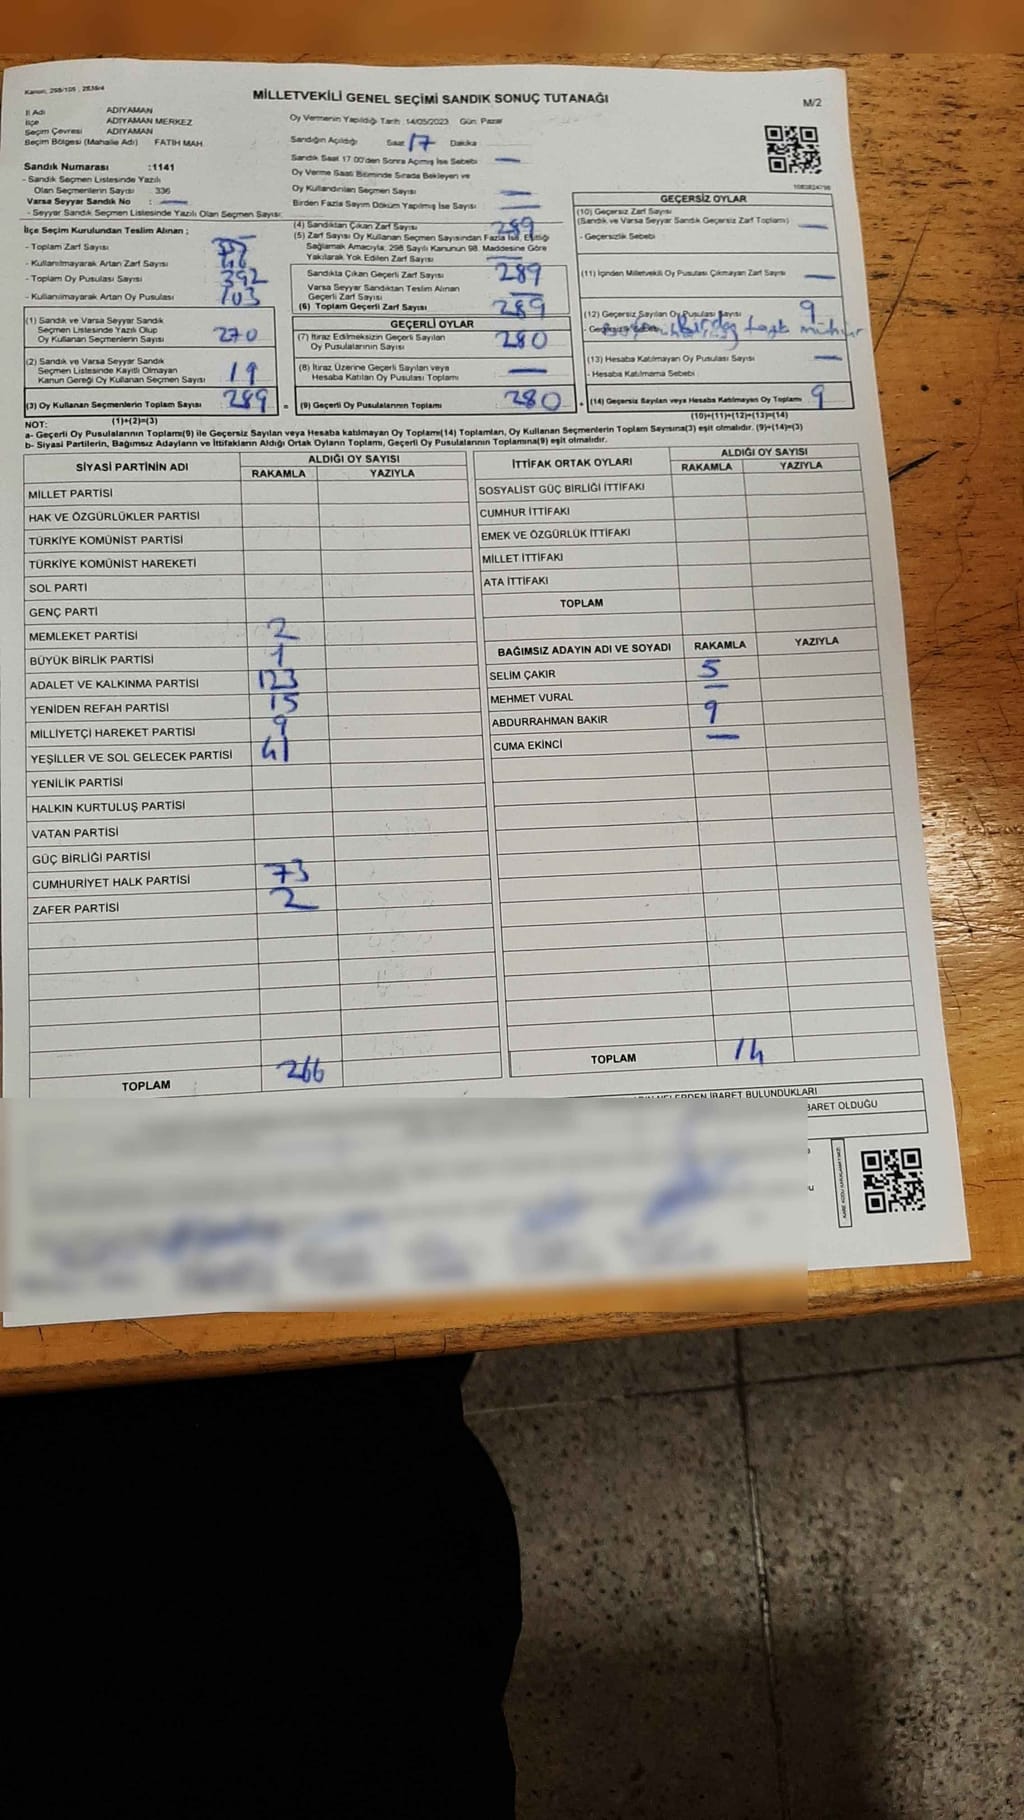 Kanun: 298/105 , 2839/4
MİLLETVEKİLİ GENEL SEÇİMİ SANDIK SONUÇ TUTANAĞI
M/2
İl Adı ADIYAMAN
İlçe ADIYAMAN MERKEZ
Seçim Çevresi ADIYAMAN
Seçim Bölgesi (Mahalle Adı) FATİH MAH.
Sandık Numarası :1141
- Sandık Seçmen Listesinde Yazılı
Olan Seçmenlerin Sayısı 336
Varsa Seyyar Sandık No : —
- Seyyar Sandık Seçmen Listesinde Yazılı Olan Seçmen Sayısı:
Oy Vermenin Yapıldığı Tarih: 14/05/2023 Gün: Pazar
Sandığın Açıldığı Saat 17 Dakika
Sandık Saat 17.00'den Sonra Açılmış İse Sebebi —
Oy Verme Saati Bitiminde Sırada Bekleyen ve
Oy Kullandırılan Seçmen Sayısı —
Birden Fazla Sayım Döküm Yapılmış İse Sayısı —
1083824798
İlçe Seçim Kurulundan Teslim Alınan ;
- Toplam Zarf Sayısı
- Kullanılmayarak Artan Zarf Sayısı
- Toplam Oy Pusulası Sayısı 392
- Kullanılmayarak Artan Oy Pusulası 103
(1) Sandık ve Varsa Seyyar Sandık
Seçmen Listesinde Yazılı Olup
Oy Kullanan Seçmenlerin Sayısı 270
(2) Sandık ve Varsa Seyyar Sandık
Seçmen Listesinde Kayıtlı Olmayan
Kanun Gereği Oy Kullanan Seçmen Sayısı 19
(3) Oy Kullanan Seçmenlerin Toplam Sayısı 289
(1)+(2)=(3)
(4) Sandıktan Çıkan Zarf Sayısı 289
(5) Zarf Sayısı Oy Kullanan Seçmen Sayısından Fazla İse, Eşitliği
Sağlamak Amacıyla, 298 Sayılı Kanunun 98. Maddesine Göre
Yakılarak Yok Edilen Zarf Sayısı —
Sandıkta Çıkan Geçerli Zarf Sayısı 289
Varsa Seyyar Sandıktan Teslim Alınan
Geçerli Zarf Sayısı —
(6) Toplam Geçerli Zarf Sayısı 289
GEÇERLİ OYLAR
(7) İtiraz Edilmeksizin Geçerli Sayılan
Oy Pusulalarının Sayısı 280
(8) İtiraz Üzerine Geçerli Sayılan veya
Hesaba Katılan Oy Pusulası Toplamı —
= (9) Geçerli Oy Pusulalarının Toplamı 280
GEÇERSİZ OYLAR
(10) Geçersiz Zarf Sayısı
(Sandık ve Varsa Seyyar Sandık Geçersiz Zarf Toplamı) —
- Geçersizlik Sebebi
(11) İçinden Milletvekili Oy Pusulası Çıkmayan Zarf Sayısı —
(12) Geçersiz Sayılan Oy Pusulası Sayısı 9
- Geçersizlik Sebebi Birden fazla mühür
(13) Hesaba Katılmayan Oy Pusulası Sayısı —
- Hesaba Katılmama Sebebi
+ (14) Geçersiz Sayılan veya Hesaba Katılmayan Oy Toplamı 9
(10)+(11)+(12)+(13)=(14)
NOT:
a- Geçerli Oy Pusulalarının Toplamı(9) ile Geçersiz Sayılan veya Hesaba katılmayan Oy Toplamı(14) Toplamları, Oy Kullanan Seçmenlerin Toplam Sayısına(3) eşit olmalıdır. (9)+(14)=(3)
b- Siyasi Partilerin, Bağımsız Adayların ve İttifakların Aldığı Ortak Oyların Toplamı, Geçerli Oy Pusulalarının Toplamına(9) eşit olmalıdır.
SİYASİ PARTİNİN ADI ALDIĞI OY SAYISI
RAKAMLA YAZIYLA
MİLLET PARTİSİ
HAK VE ÖZGÜRLÜKLER PARTİSİ
TÜRKİYE KOMÜNİST PARTİSİ
TÜRKİYE KOMÜNİST HAREKETİ
SOL PARTİ
GENÇ PARTİ
MEMLEKET PARTİSİ 2
BÜYÜK BİRLİK PARTİSİ 1
ADALET VE KALKINMA PARTİSİ 123
YENİDEN REFAH PARTİSİ 15
MİLLİYETÇİ HAREKET PARTİSİ 9
YEŞİLLER VE SOL GELECEK PARTİSİ 41
YENİLİK PARTİSİ
HALKIN KURTULUŞ PARTİSİ
VATAN PARTİSİ
GÜÇ BİRLİĞİ PARTİSİ
CUMHURİYET HALK PARTİSİ 73
ZAFER PARTİSİ 2
TOPLAM 266
İTTİFAK ORTAK OYLARI ALDIĞI OY SAYISI
RAKAMLA YAZIYLA
SOSYALİST GÜÇ BİRLİĞİ İTTİFAKI
CUMHUR İTTİFAKI
EMEK VE ÖZGÜRLÜK İTTİFAKI
MİLLET İTTİFAKI
ATA İTTİFAKI
TOPLAM
BAĞIMSIZ ADAYIN ADI VE SOYADI RAKAMLA YAZIYLA
SELİM ÇAKIR 5
MEHMET VURAL —
ABDURRAHMAN BAKIR 9
CUMA EKİNCİ —
TOPLAM 14
İBARET BULUNDUKLARI
OLDUĞU